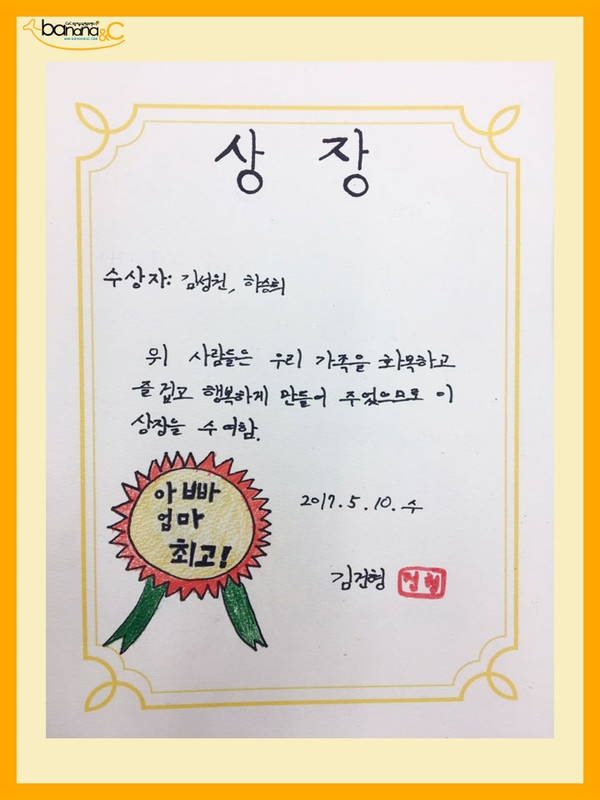 banana&C
상 장
수상자: 김성원, 하승희
위 사람들은 우리 가족을 화목하고
즐겁고 행복하게 만들어 주었으므로 이
상장을 수여함.
아빠
엄마
최고!
2017. 5. 10. 수
김건형 건형